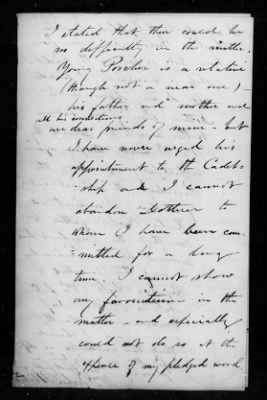 I stated that there could be
no difficulty in the matter.
Young Porcher is a relative
(though not a near one) -
his father and mother and
all his connections
are dear friends of mine - but
I have never urged his
appointment to the Cadet-
ship and I cannot
abandon to
whom I have been com-
mitted for a long
time. I cannot show
any favouritism in the
matter - and especially
could not do so at the
expense of my pledged word